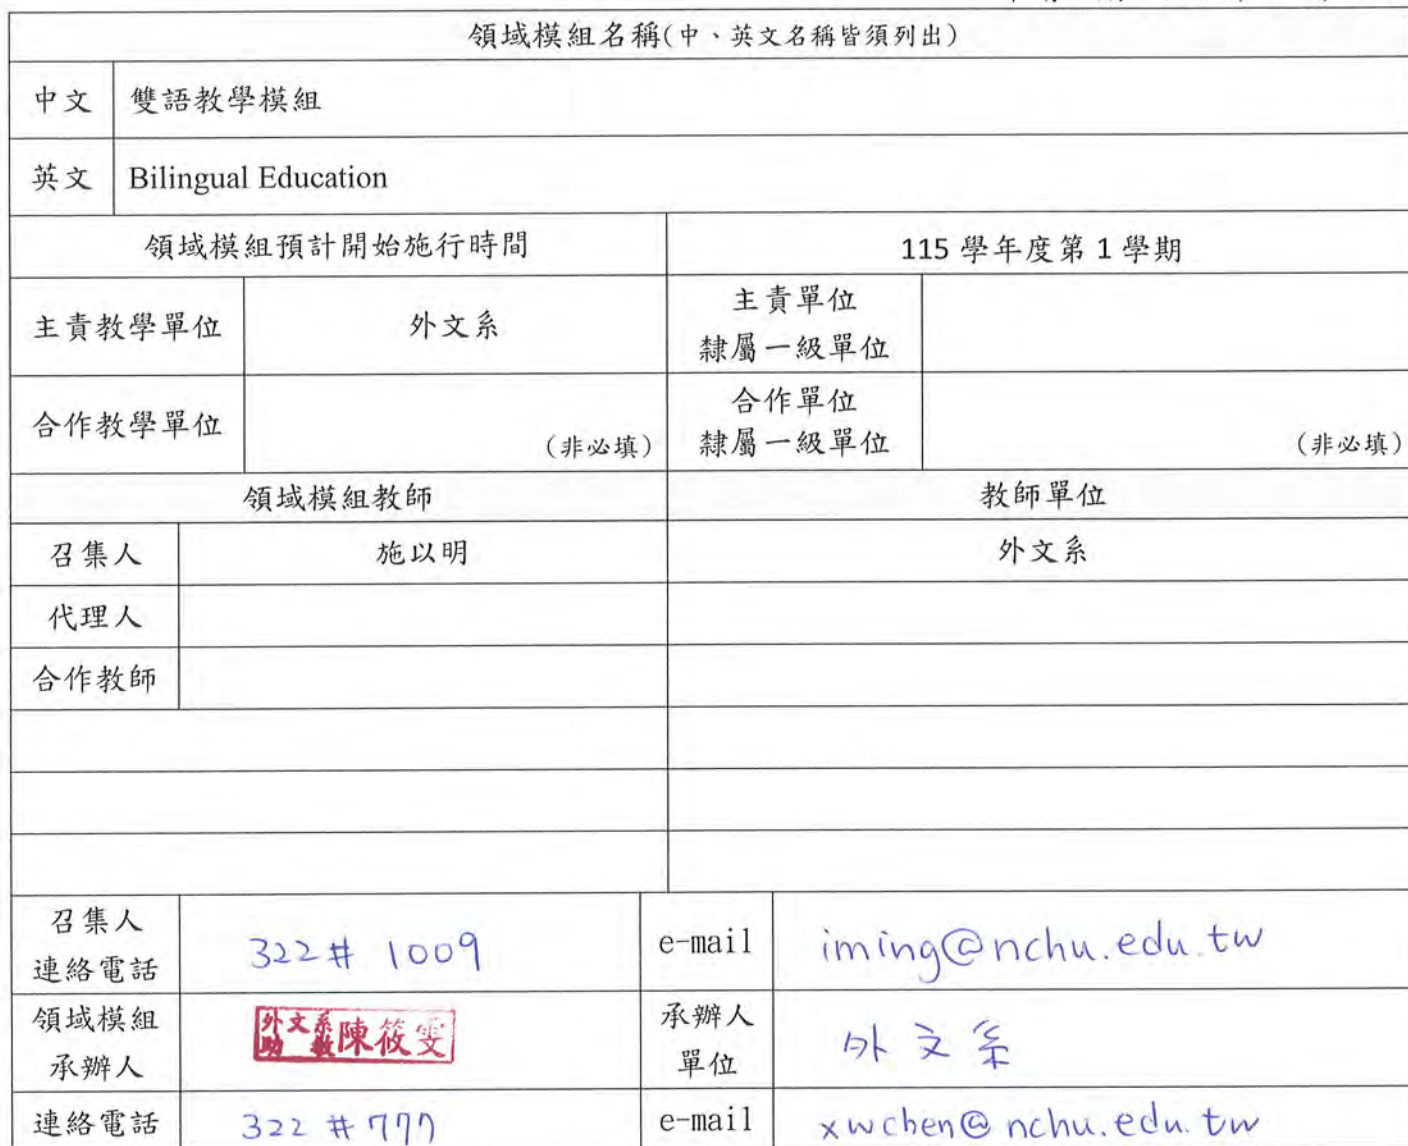 領域模組名稱(中、英文名稱皆須列出)
中文 雙語教學模組
英文 Bilingual Education
領域模組預計開始施行時間 115 學年度第 1 學期
主責教學單位 外文系 主責單位
隸屬一級單位
合作教學單位 (非必填) 合作單位
隸屬一級單位 (非必填)
領域模組教師 教師單位
召集人 施以明 外文系
代理人
合作教師
召集人
連絡電話 322# 1009 e-mail iming@nchu.edu.tw
領域模組
承辦人 外文系助教 陳筱雯 承辦人
單位 外文系
連絡電話 322 #777 e-mail xwchen@nchu.edu.tw